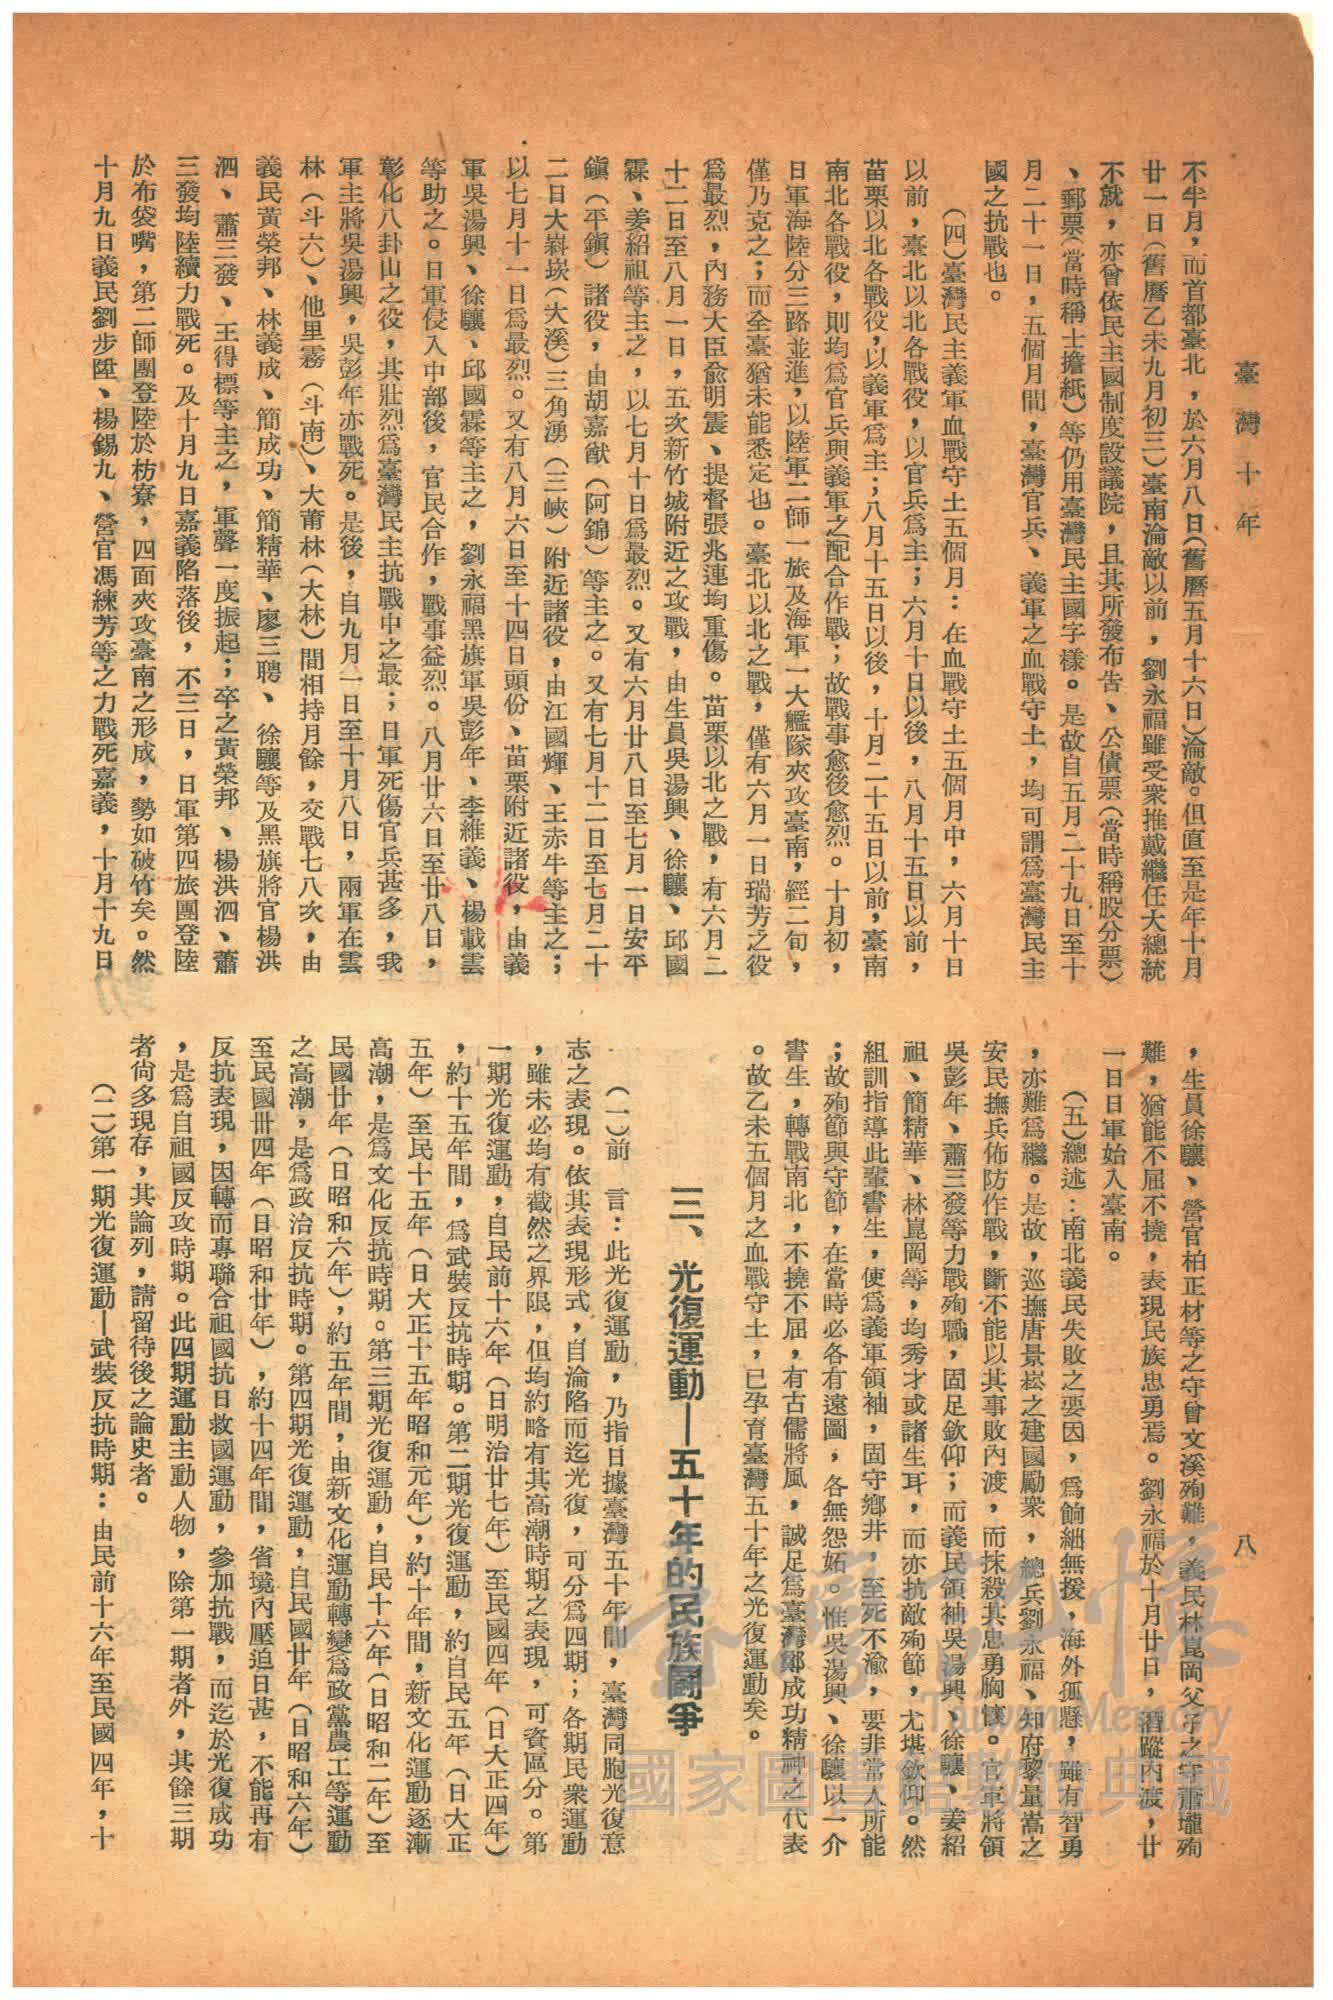 臺灣十年
八
不半月，而首都臺北，於六月八日（舊曆五月十六日）淪敵。但直至是年十月
廿一日（舊曆乙未九月初三）臺南淪敵以前，劉永福雖受衆推戴繼任大總統
不就，亦曾依民主國制度設議院，且其所發布告、公債票（當時稱股分票）
、郵票（當時稱士擔紙）等仍用臺灣民主國字樣。是故自五月二十九日至十
月二十一日，五個月間，臺灣官兵、義軍之血戰守土，均可謂爲臺灣民主
國之抗戰也。
（四）臺灣民主義軍血戰守土五個月：在血戰守土五個月中，六月十日
以前，臺北以北各戰役，以官兵爲主；六月十日以後，八月十五日以前，
苗栗以北各戰役，以義軍爲主；八月十五日以後，十月二十五日以前，臺南
南北各戰役，則均爲官兵與義軍之配合作戰；故戰事愈後愈烈。十月初，
日軍海陸分三路並進，以陸軍二師一旅及海軍一大艦隊夾攻臺南，經二旬，
僅乃克之；而全臺猶未能悉定也。臺北以北之戰，僅有六月一日瑞芳之役
爲最烈，內務大臣俞明震、提督張兆連均重傷。苗栗以北之戰，有六月二
十二日至八月一日，五次新竹城附近之攻戰，由生員吳湯興、徐驤、邱國
霖、姜紹祖等主之，以七月十日爲最烈。又有六月廿八日至七月一日安平
鎭（平鎭）諸役，由胡嘉猷（阿錦）等主之。又有七月十二日至七月二十
二日大嵙崁（大溪）三角湧（三峽）附近諸役，由江國輝、王赤牛等主之；
以七月十一日爲最烈。又有八月六日至十四日頭份、苗栗附近諸役，由義
軍吳湯興、徐驤、邱國霖等主之，劉永福黑旗軍吳彭年、李維義、楊載雲
等助之。日軍侵入中部後，官民合作，戰事益烈。八月廿六日至廿八日，
彰化八卦山之役，其壯烈爲臺灣民主抗戰中之最；日軍死傷官兵甚多，我
軍主將吳湯興，吳彭年亦戰死。是後，自九月一日至十月八日，兩軍在雲
林（斗六）、他里霧（斗南）、大莆林（大林）間相持月餘，交戰七八次，由
義民黃榮邦、林義成、簡成功、簡精華、廖三聘、徐驤等及黑旗將官楊洪
泗、蕭三發、王得標等主之，軍聲一度振起；卒之黃榮邦、楊洪泗、蕭
三發均陸續力戰死。及十月九日嘉義陷落後，不三日，日軍第四旅團登陸
於布袋嘴，第二師團登陸於枋寮，四面夾攻臺南之形成，勢如破竹矣。然
十月九日義民劉步陞、楊錫九、營官馮練芳等之力戰死嘉義，十月十九日
，生員徐驤、營官柏正材等之守曾文溪殉難，義民林崑岡父子之守蕭壠殉
難，猶能不屈不撓，表現民族忠勇焉。劉永福於十月廿日，潛蹤內渡，廿
一日日軍始入臺南。
（五）總述：南北義民失敗之要因，爲餉絀無援，海外孤懸，雖有智勇
，亦難爲繼。是故，巡撫唐景崧之建國勵衆，總兵劉永福、知府黎景嵩之
安民撫兵佈防作戰，斷不能以其事敗內渡，而抹殺其忠勇胸懷。官軍將領
吳彭年、蕭三發等力戰殉職，固足欽仰；而義民領袖吳湯興、徐驤、姜紹
祖、簡精華、林崑岡等，均秀才或諸生耳，而亦抗敵殉節，尤堪欽仰。然
組訓指導此輩書生，使爲義軍領袖，固守鄉井，至死不渝，要非常人所能
；故殉節與守節，在當時必各有遠圖，各無怨妬。惟吳湯興、徐驤以一介
書生，轉戰南北，不撓不屈，有古儒將風，誠足爲臺灣鄭成功精神之代表
。故乙未五個月之血戰守土，已孕育臺灣五十年之光復運動矣。
三、光復運動—五十年的民族鬪爭
（一）前　言：此光復運動，乃指日據臺灣五十年間，臺灣同胞光復意
志之表現。依其表現形式，自淪陷而迄光復，可分爲四期；各期民衆運動
，雖未必均有截然之界限，但均約略有其高潮時期之表現，可資區分。第
一期光復運動，自民前十六年（日明治廿七年）至民國四年（日大正四年）
，約十五年間，爲武裝反抗時期。第二期光復運動，約自民五年（日大正
五年）至民十五年（日大正十五年昭和元年），約十年間，新文化運動逐漸
高潮，是爲文化反抗時期。第三期光復運動，自民十六年（日昭和二年）至
民國廿年（日昭和六年），約五年間，由新文化運動轉變爲政黨農工等運動
之高潮，是爲政治反抗時期。第四期光復運動，自民國廿年（日昭和六年）
至民國卅四年（日昭和廿年），約十四年間，省境內壓迫日甚，不能再有
反抗表現，因轉而專聯合祖國抗日救國運動，參加抗戰，而迄於光復成功
，是爲自祖國反攻時期。此四期運動主動人物，除第一期者外，其餘三期
者尙多現存，其論列，請留待後之論史者。
（二）第一期光復運動—武裝反抗時期：由民前十六年至民國四年，十
臺灣記憶
Taiwan Memory
國家圖書館數位典藏